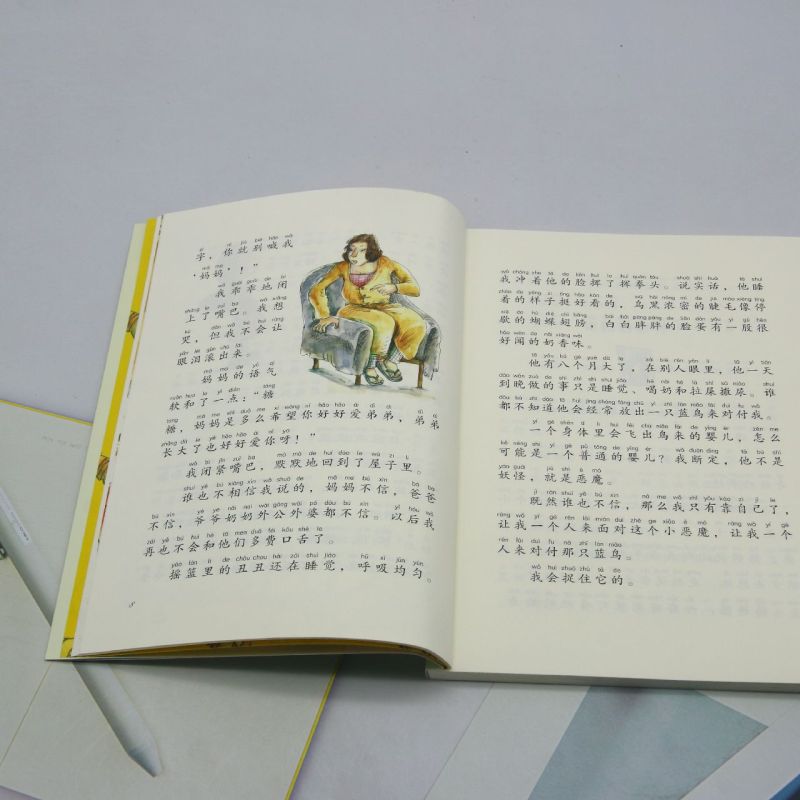 字，你就别喊我
‘妈妈’！”
我乖乖地闭
上了嘴巴。我想
哭，但我不会让
眼泪滚出来。
妈妈的语气
软和了一点：“糖
糖，妈妈是多么希望你好好爱弟弟，弟弟
长大了也好好爱你呀！”
我闭紧嘴巴，默默地回到了屋子里。
谁也不相信我说的，妈妈不信，爸爸
不信，爷爷奶奶外公外婆都不信。以后我
再也不会和他们多费口舌了。
摇篮里的丑丑还在睡觉，呼吸均匀。
8
我冲着他的脸挥了挥拳头。说实话，他睡
着的样子挺好看的，乌黑浓密的睫毛像停
歇的蝴蝶翅膀，白白胖胖的脸蛋有一股很
好闻的奶香味。
他有八个月大了，在别人眼里，他一天
到晚做的事只是睡觉、喝奶和拉屎撒尿。谁
都不知道他会经常放出一只蓝鸟来对付我。
一个身体里会飞出鸟来的婴儿，怎么
可能是一个普通的婴儿？我断定，他不是
妖怪，就是恶魔。
既然谁也不信，那么我只有靠自己了，
让我一个人来面对这个小恶魔，让我一个
人来对付那只蓝鸟。
我会捉住它的。